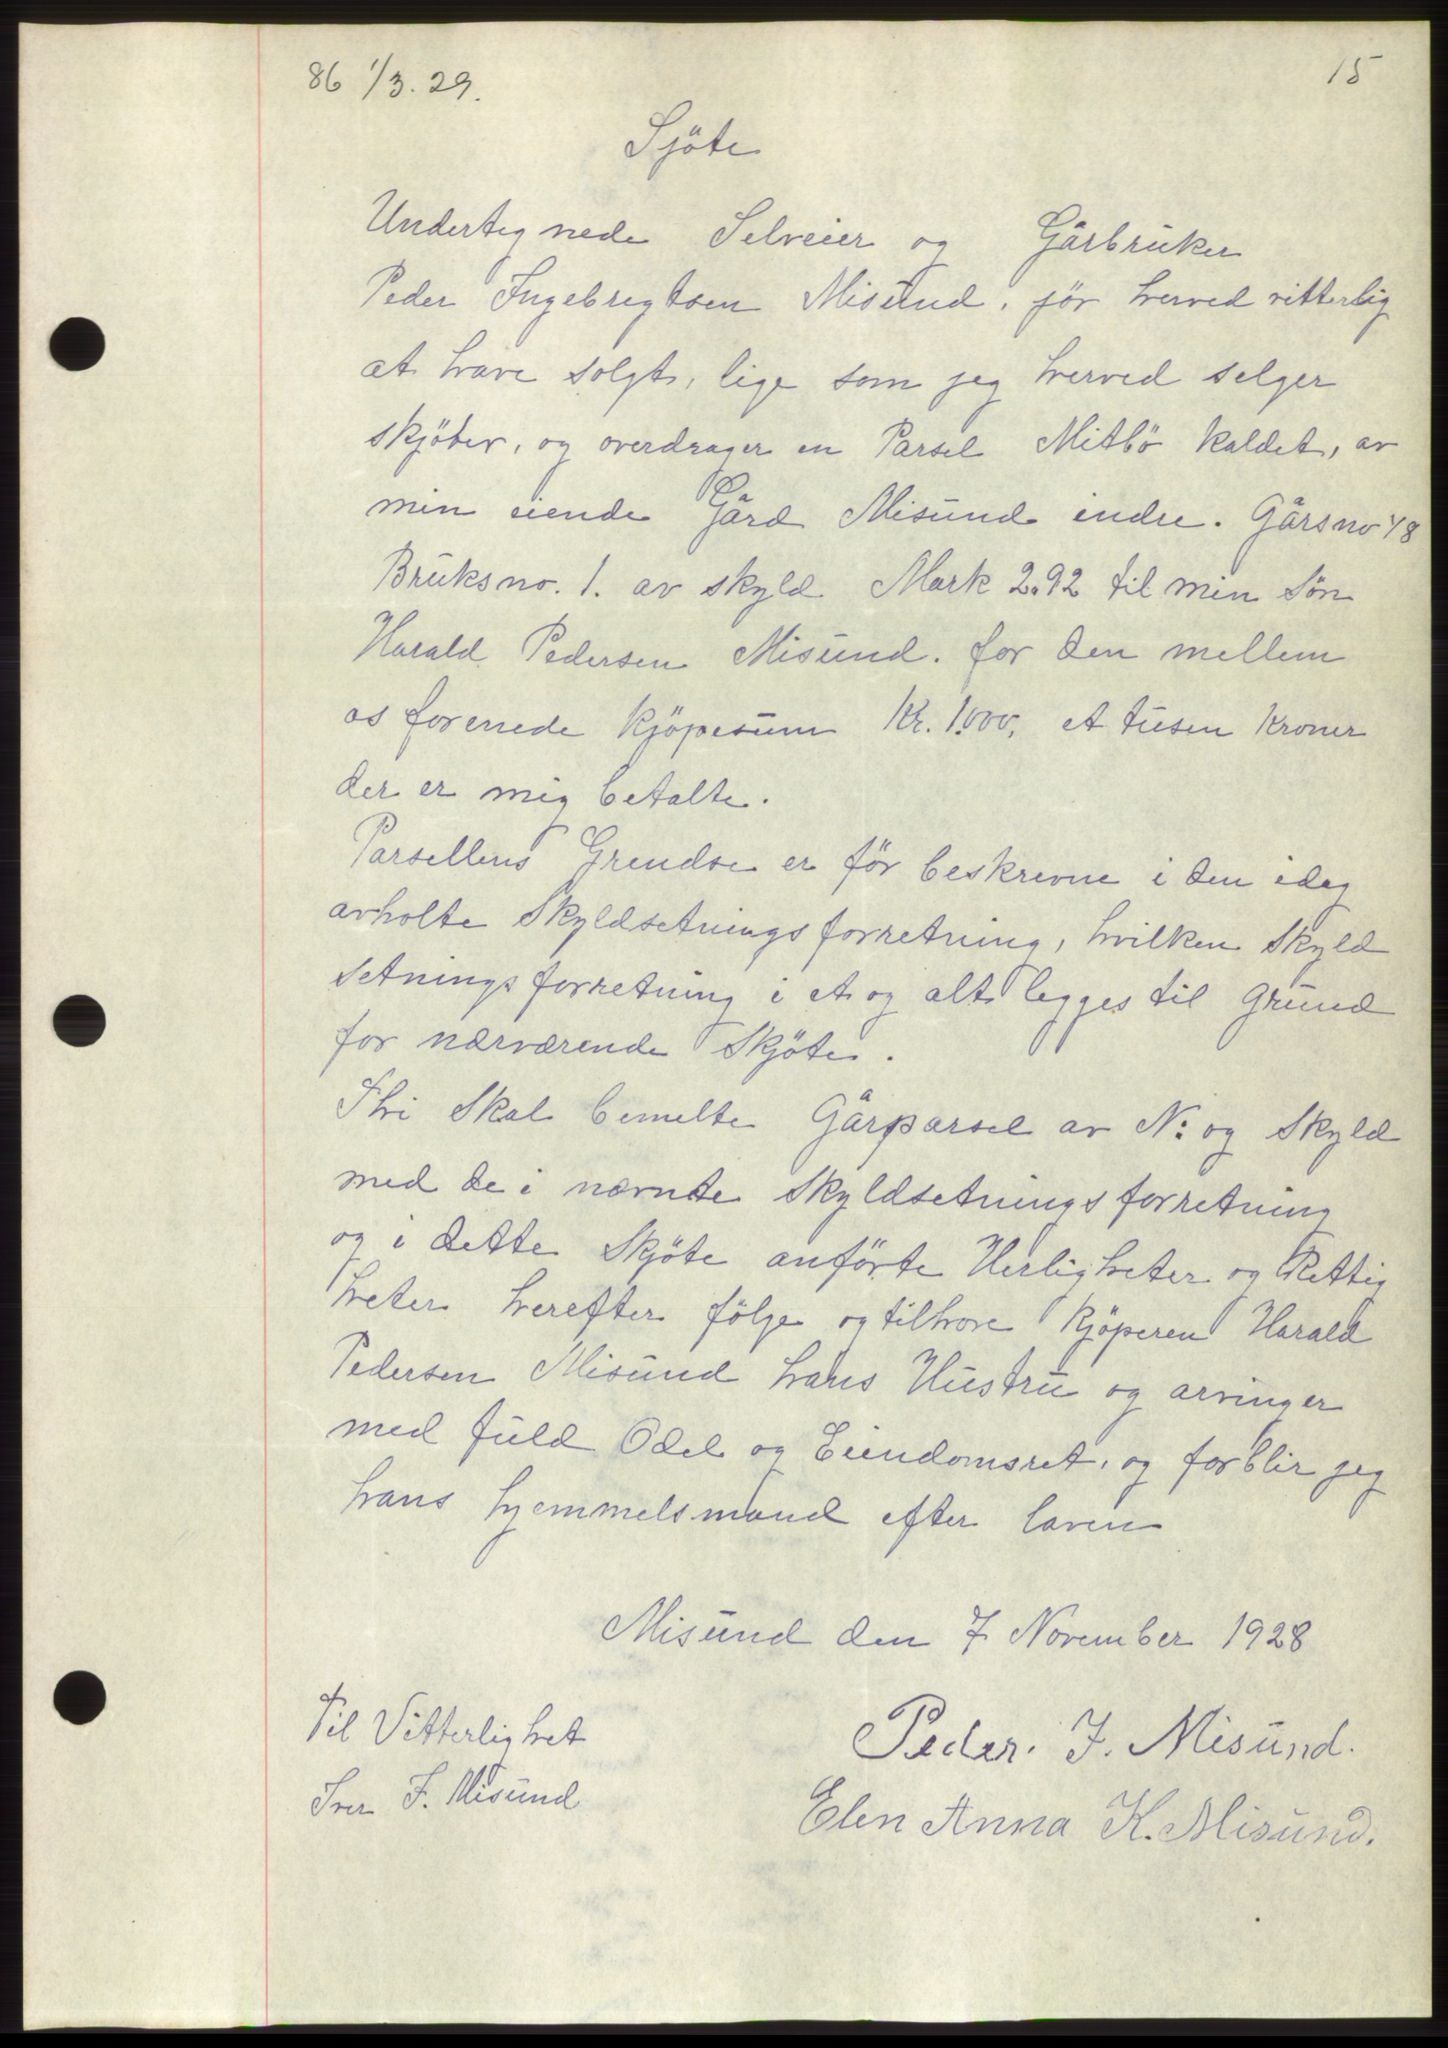 86 1/3. 29.
15
Sjöte
Undertegnede Selveier og Gårbruker
Peder Ingebregtsen Misund, jör herved vitterlig
at have solgt, lige som jeg herved selger
skjöter, og overdrager en Parsel Mitbö kaldet, av
min eiende Gård Misund indre. Gårsno 48
Bruksno. 1. av skyld Mark 2.92 til min Sön
Harald Pedersen Misund. for den mellem
os forenede Kjöpesum Kr. 1000, et tusen Kroner
der er mig betalte.
Parsellens Grendse er för beskrevne i den idag
avholte Skyldsetningsforretning, hvilken Skyld
setningsforretning i et og alt legges til Grund
for nærværende Skjöte.
Thi Skal bemelte Gårparsel av No: og Skyld
med de i nævnte Skyldsetningsforretning
og i dette Skjöte anförte Herligheter og Rettig
heter herefter fölge og tilhöre Kjöperen Harald
Pedersen Misund hans Hustru og arvinger
med fuld Odel og Eiendomsret, og forblir jeg
hans hjemmelsmand efter loven
Misund den 7 November 1928
Til Vitterlighet
Peder. I. Misund.
Iver F. Misund
Elen Anna K. Misund.